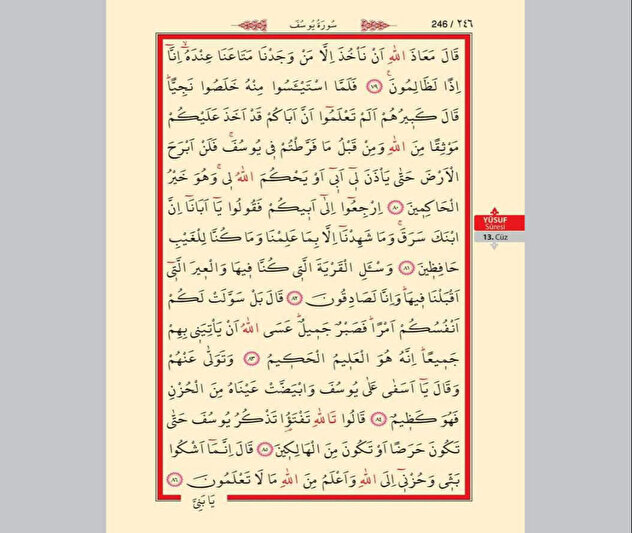 246 / ٢٤٦
سُورَةُ يُوسُفَ
قَالَ مَعَاذَ اللّٰهِ اَنْ نَأْخُذَ اِلَّا مَنْ وَجَدْنَا مَتَاعَنَا عِنْدَهُٓۙ اِنَّٓا
اِذًا لَظَالِمُونَ۟ ﴿٧٩﴾ فَلَمَّا اسْتَيْـَٔسُوا مِنْهُ خَلَصُوا نَجِيًّاۜ
قَالَ كَب۪يرُهُمْ اَلَمْ تَعْلَمُٓوا اَنَّ اَبَاكُمْ قَدْ اَخَذَ عَلَيْكُمْ
مَوْثِقًا مِنَ اللّٰهِ وَمِنْ قَبْلُ مَا فَرَّطْتُمْ ف۪ي يُوسُفَۚ فَلَنْ اَبْرَحَ
الْاَرْضَ حَتّٰى يَأْذَنَ ل۪ٓي اَب۪ٓي اَوْ يَحْكُمَ اللّٰهُ ل۪يۚ وَهُوَ خَيْرُ
الْحَاكِم۪ينَ ﴿٨٠﴾ اِرْجِعُٓوا اِلٰٓى اَب۪يكُمْ فَقُولُوا يَٓا اَبَانَٓا اِنَّ
ابْنَكَ سَرَقَۚ وَمَا شَهِدْنَٓا اِلَّا بِمَا عَلِمْنَا وَمَا كُنَّا لِلْغَيْبِ
حَافِظ۪ينَ ﴿٨١﴾ وَسْـَٔلِ الْقَرْيَةَ الَّت۪ي كُنَّا ف۪يهَا وَالْع۪يرَ الَّت۪ٓي
اَقْبَلْنَا ف۪يهَاۜ وَاِنَّا لَصَادِقُونَ ﴿٨٢﴾ قَالَ بَلْ سَوَّلَتْ لَكُمْ
اَنْفُسُكُمْ اَمْرًاۜ فَصَبْرٌ جَم۪يلٌۜ عَسَى اللّٰهُ اَنْ يَأْتِيَن۪ي بِهِمْ
جَم۪يعًاۜ اِنَّهُ هُوَ الْعَل۪يمُ الْحَك۪يمُ ﴿٨٣﴾ وَتَوَلّٰى عَنْهُمْ
وَقَالَ يَٓا اَسَفٰى عَلٰى يُوسُفَ وَابْيَضَّتْ عَيْنَاهُ مِنَ الْحُزْنِ
فَهُوَ كَظ۪يمٌ ﴿٨٤﴾ قَالُوا تَاللّٰهِ تَفْتَؤُ۬ا تَذْكُرُ يُوسُفَ حَتّٰى
تَكُونَ حَرَضًا اَوْ تَكُونَ مِنَ الْهَالِك۪ينَ ﴿٨٥﴾ قَالَ اِنَّمَٓا اَشْكُوا
بَثّ۪ي وَحُزْن۪ٓي اِلَى اللّٰهِ وَاَعْلَمُ مِنَ اللّٰهِ مَا لَا تَعْلَمُونَ ﴿٨٦﴾
يَا بَنِيَّ
YÛSUF
Sûresi
13. Cüz